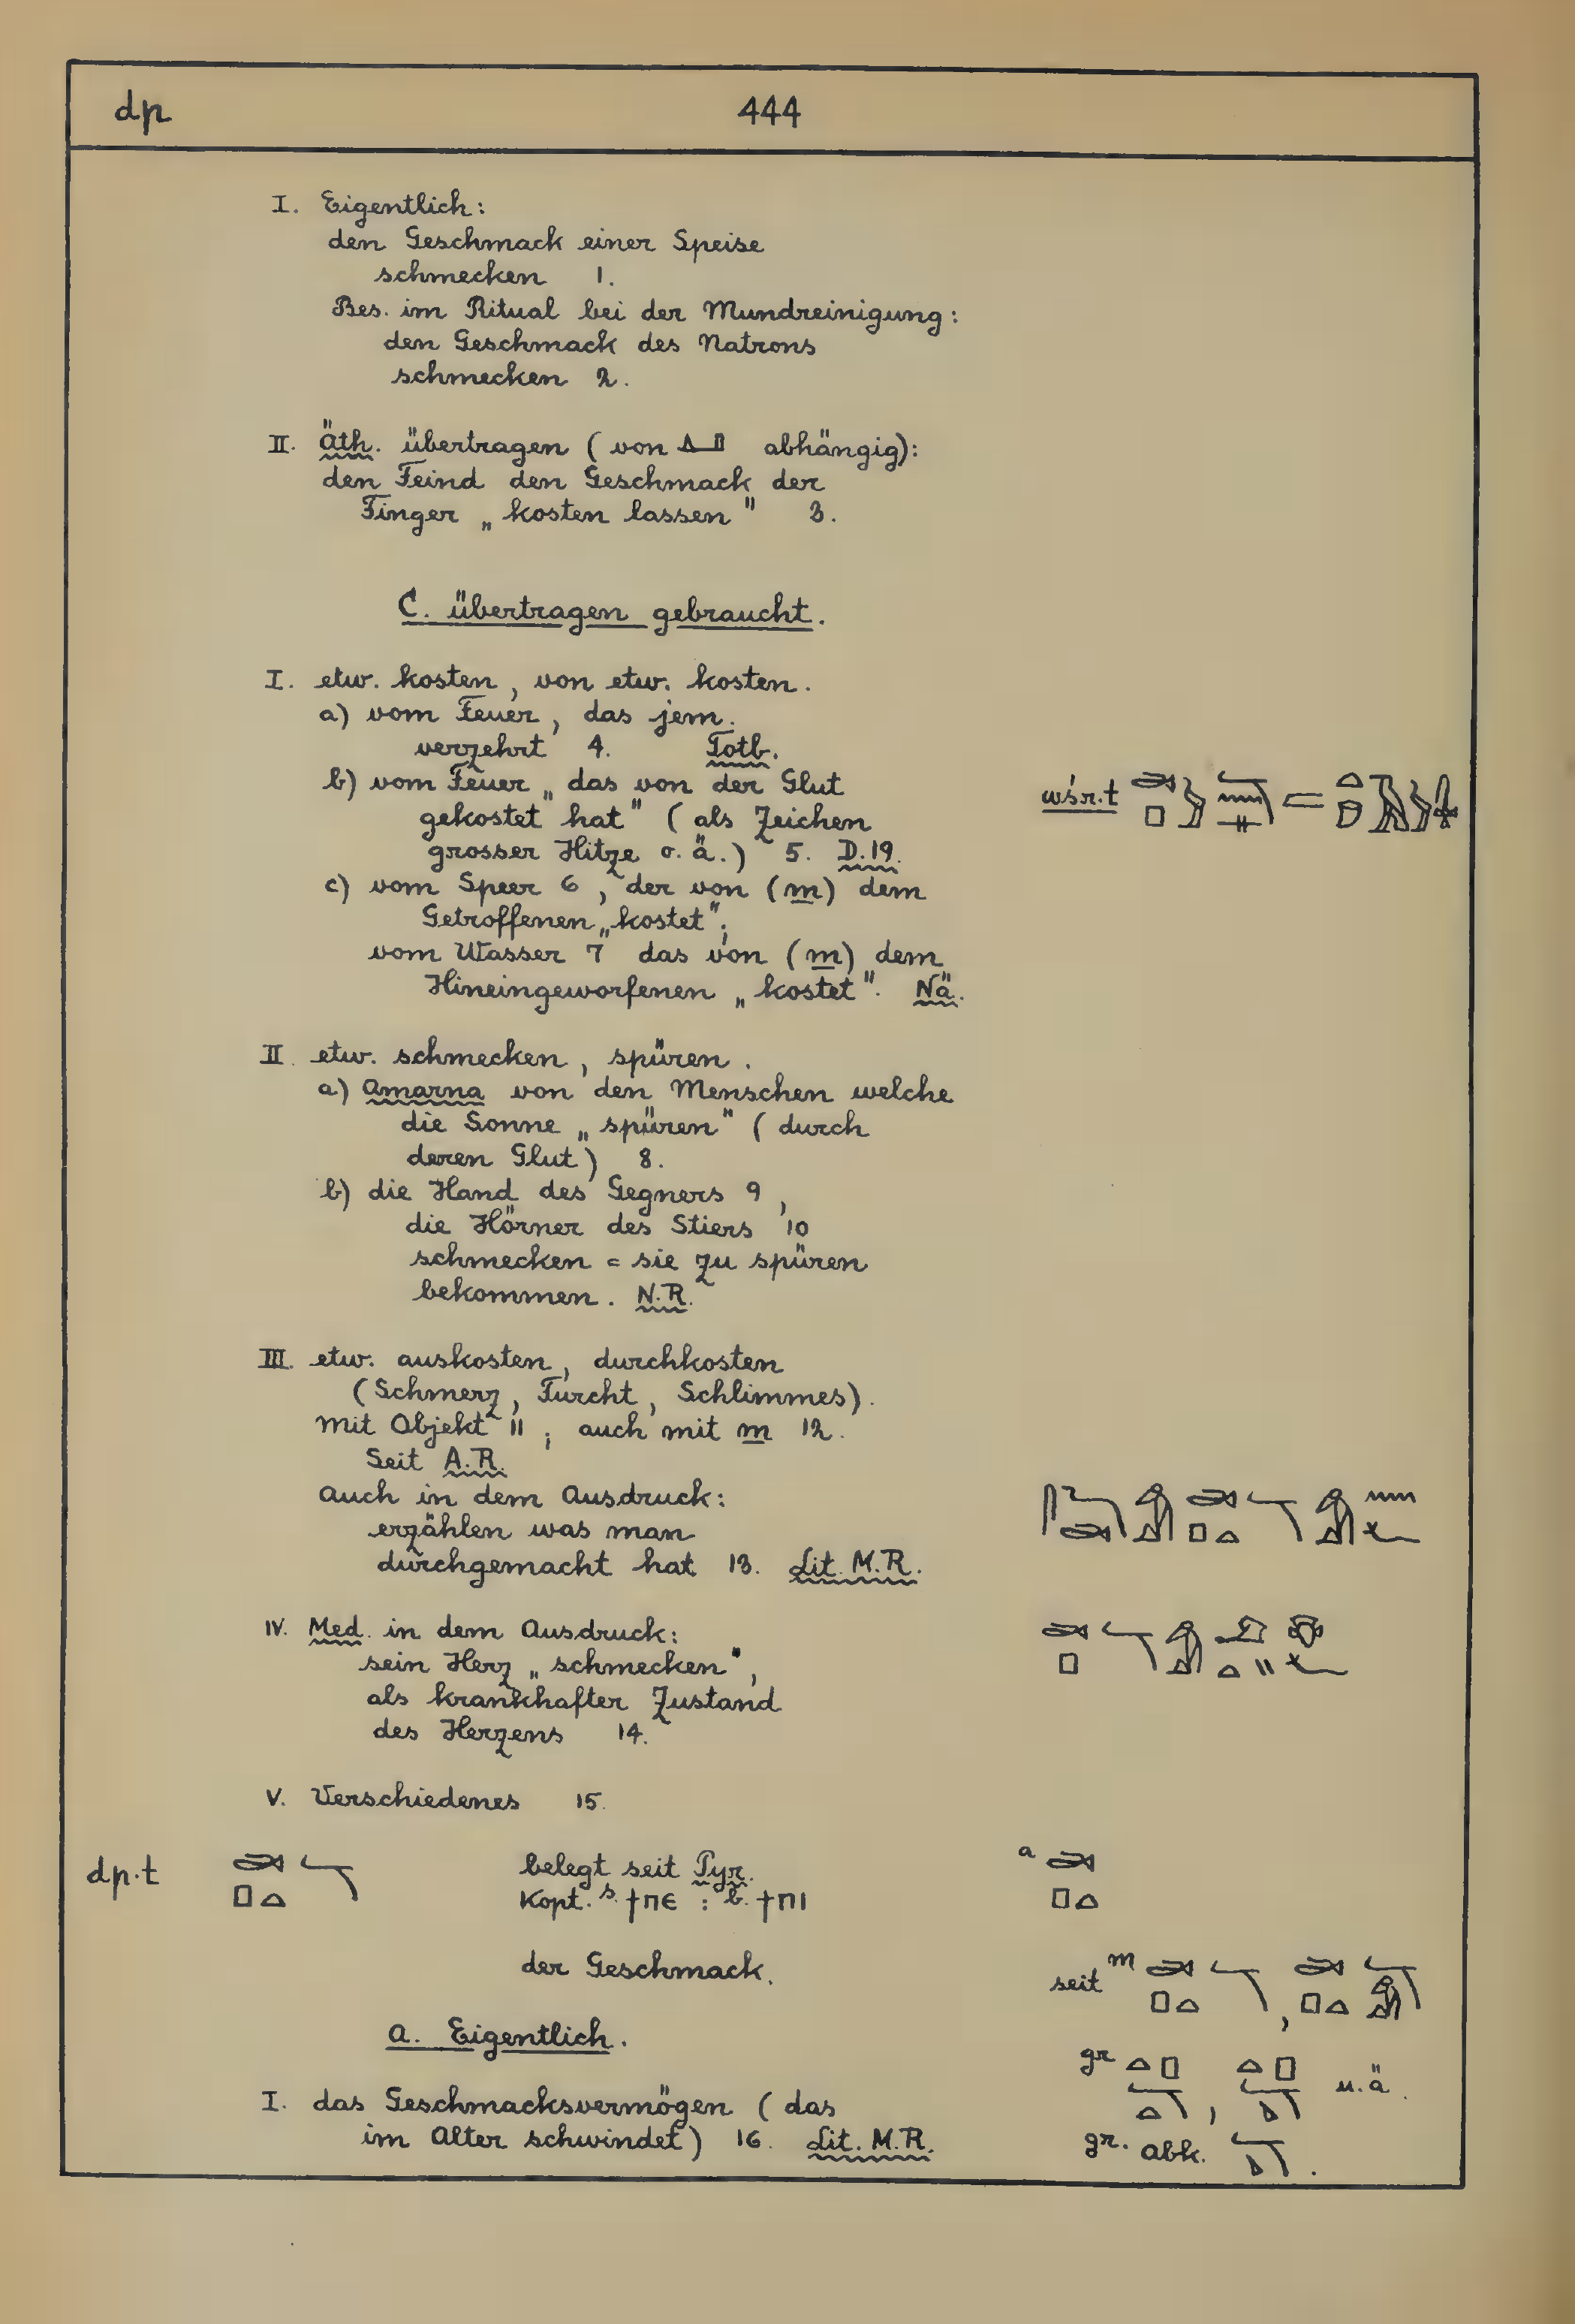 dp 444
I. Eigentlich:
den Geschmack einer Speise
schmecken 1.
Bes. im Ritual bei der Mundreinigung:
den Geschmack des Natrons
schmecken 2.
II. Äth. übertragen (von abhängig):
den Feind den Geschmack der
Finger „kosten lassen" 3.
C. übertragen gebraucht.
I. etw. kosten, von etw. kosten.
a) vom Feuer, das jem.
verzehrt 4. Totb.
b) vom Feuer „das von der Glut
gekostet hat" (als Zeichen
wśr.t
grosser Hitze o. ä.) 5. D.19.
c) vom Speer 6, der von (m) dem
Getroffenen „kostet";
vom Wasser 7 das von (m) dem
Hineingeworfenen „kostet". Nä.
II. etw. schmecken, spüren.
a) Amarna von den Menschen welche
die Sonne „spüren" (durch
deren Glut) 8.
b) die Hand des Gegners 9,
die Hörner des Stiers 10
schmecken = sie zu spüren
bekommen. N.R.
III. etw. auskosten, durchkosten
(Schmerz, Furcht, Schlimmes).
mit Objekt 11; auch mit m 12.
Seit A.R.
auch in dem Ausdruck:
erzählen was man
durchgemacht hat 13. Lit. M.R.
IV. Med. in dem Ausdruck:
sein Herz „schmecken",
als krankhafter Zustand
des Herzens 14.
V. Verschiedenes 15.
dp.t belegt seit Pyr. a
Kopt. s. ϯⲡⲉ : b. ϯⲡⲓ
der Geschmack.
seit m ,
a. Eigentlich.
gr , u. ä.
I. das Geschmacksvermögen (das
im Alter schwindet) 16. Lit. M.R. gr. abk. .